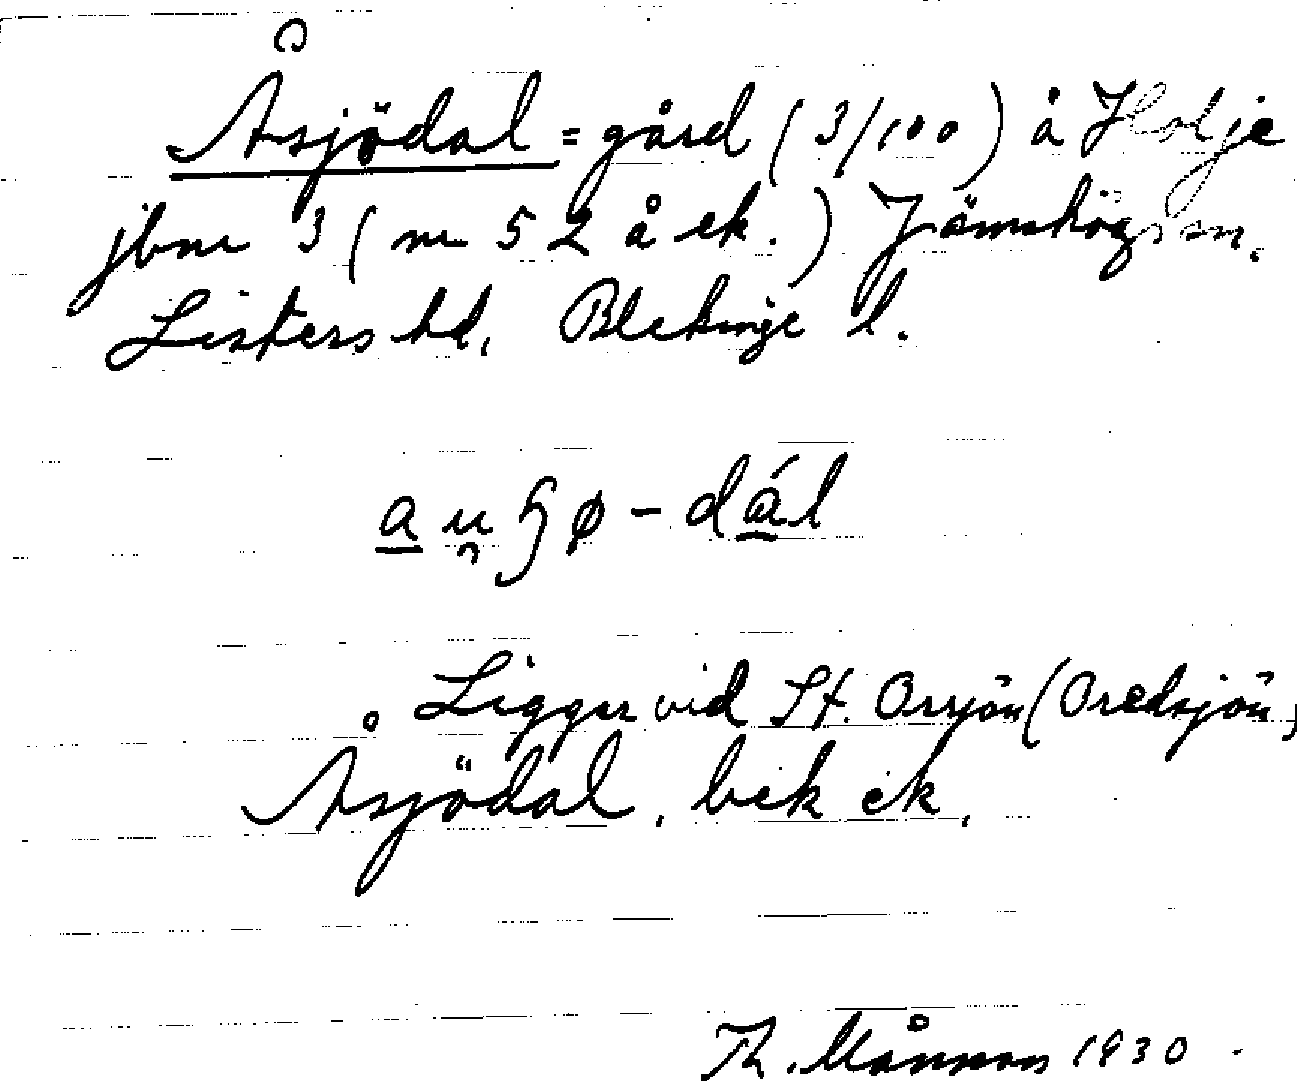 Åsjödal = gård (3/100) å Holje
jbnr 3 (nr 52 å ek.) Jämshögs sn.
Listers hd, Blekinge l.
au̯ʃø - dál
Ligger vid St. Orsjön (Oredsjön)
Åsjödal, bek ek.
Th. Månsson 1930.